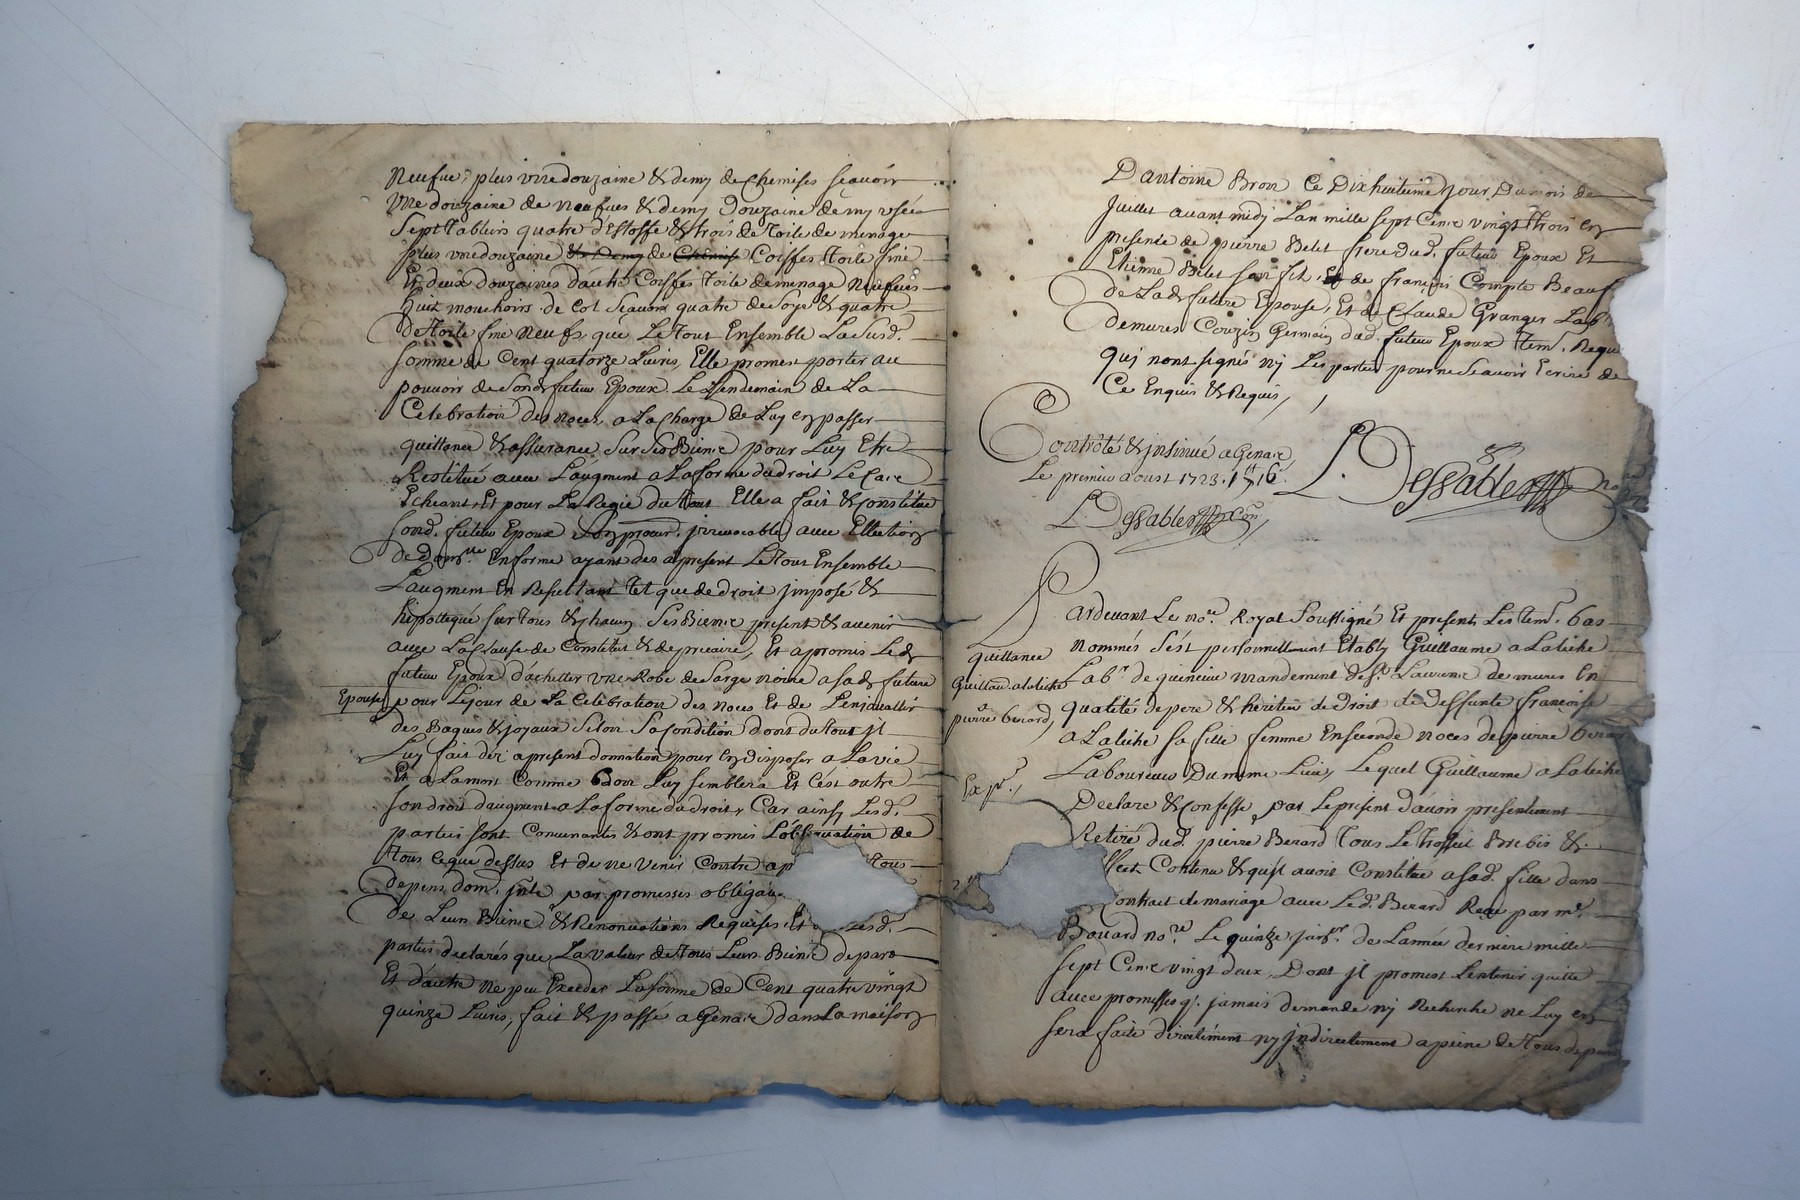 Neufue, plus vne douzaine & demy de chemises scauoir
vne douzaine de neufues & demy douzaine demy vsée
Sept Tabliers quatre d'Estoffe & trois de Toile de menage
plus vne douzaine & Demy de Chemise Coiffes Toile fine
Et deux douzaines d'autre Coiffes Toile de menage Neufues
huit mouchoirs de col Scauoir quatre de Soye & quatre
De Toile fine Neufs, que Le Tout Ensemble La Susd.
Somme de Cent quatorze Liures, Elle promet porter au
pouuoir de Sond futeur Epoux Le Lendemain de La
Celebration des noces, a La Charge de Luy en passer
quittance & assurance Sur Ses Biens pour Luy Etre
Restitué auec Laugment a La forme du droit Le Cas
Echeant, Et pour La Regie du Tout Elle a fait & Constitué
Sond. futeur Epoux Son procur. jrreuocable auec Ellection
de Domlle En forme ayant des apresent Le Tout Ensemble
Laugment En Resultant Tel que de droit jmposé &
hipottequé Sur Tous & chacun Ses Biens present & auenir
auec La Clause de Constitut & de precaire, Et a promis Led
futeur Epoux d'achetter vne Robe de Sarge noire a sad future
Epouse pour Le jour de La Celebration des noces Et de L'enjoualler
des Bagues & joyaux Selon Sa Condition dont du tout jl
Luy fait des apresent donnation pour En disposer a La vie
Et a La mort Comme Bon Luy Semblera Et C'est outre
Son droit d'augment a La forme du droit, Car ainsy Lesd.
parties Sont Conuenantes & ont promis L'observation de
Tous ce que dessus Et de ne venir Contre a p tous
depens, dom. jnts par promesses obligaon
de Leurs Biens & Renonciations Requises. Et Lesd.
parties declarés que La valeur de Tous Leurs Biens de part
Et d'autre ne peu Exceder La Somme de Cent quatre vingt
quinze Liures, fait & passé a Genas dans La maison
Dantoine Bron Ce Dix huitieme jour Du mois de
Juillet auant midy Lan mille Sept Cens vingt trois En
presence de pierre Belet frere dud. futeur Epoux Et
Etienne Belet Son fils, Et de françois Compte Beauf
de Lad future Epouse, Et de Claude Granger Lab
demures Couzin Germain dud. futeur Epoux tem. Requ
quj n'ont signés nj Les parties pour ne Scauoir Ecrire de
Ce Enquis & Requis
Controlé & jnsinué a Genas
Le premier aoust 1723.
L. Dessables
L. Dessables
Pardeuant Le nore Royal Soussigné Et presents Les tem. bas
nommés S'est personnellement Etably Guillaume a Laliche
Labr de quincieu mandement de St. Laurens demures En
qualité de pere & heritier de Droit de deffunte françoise
a Laliche Sa fille femme En Seconde noces de pierre Berard
Laboureur Du meme Lieu, Lequel Guillaume a Laliche
Declare & Confesse par Le présent d'auoir presentement
Retiré dud. pierre Berard Tous Le Trosseü Brebis &
Contenu & qu'jl auoit Constitué a Sad. fille dans
ontract de mariage auec Led. Berard Reçu par me.
Bouard nore. Le quinze janvr. de Lannée derniere mille
Sept Cens vingt deux, Dont jl promet L'entenir quitte
auec promesses q. jamais demande nj Recherche ne Luy en
Sera faite directement nj jndirectement a peine de Tous depens
quittance
Guillau. a Laliche
a
pierre Berard,
Ex pr.